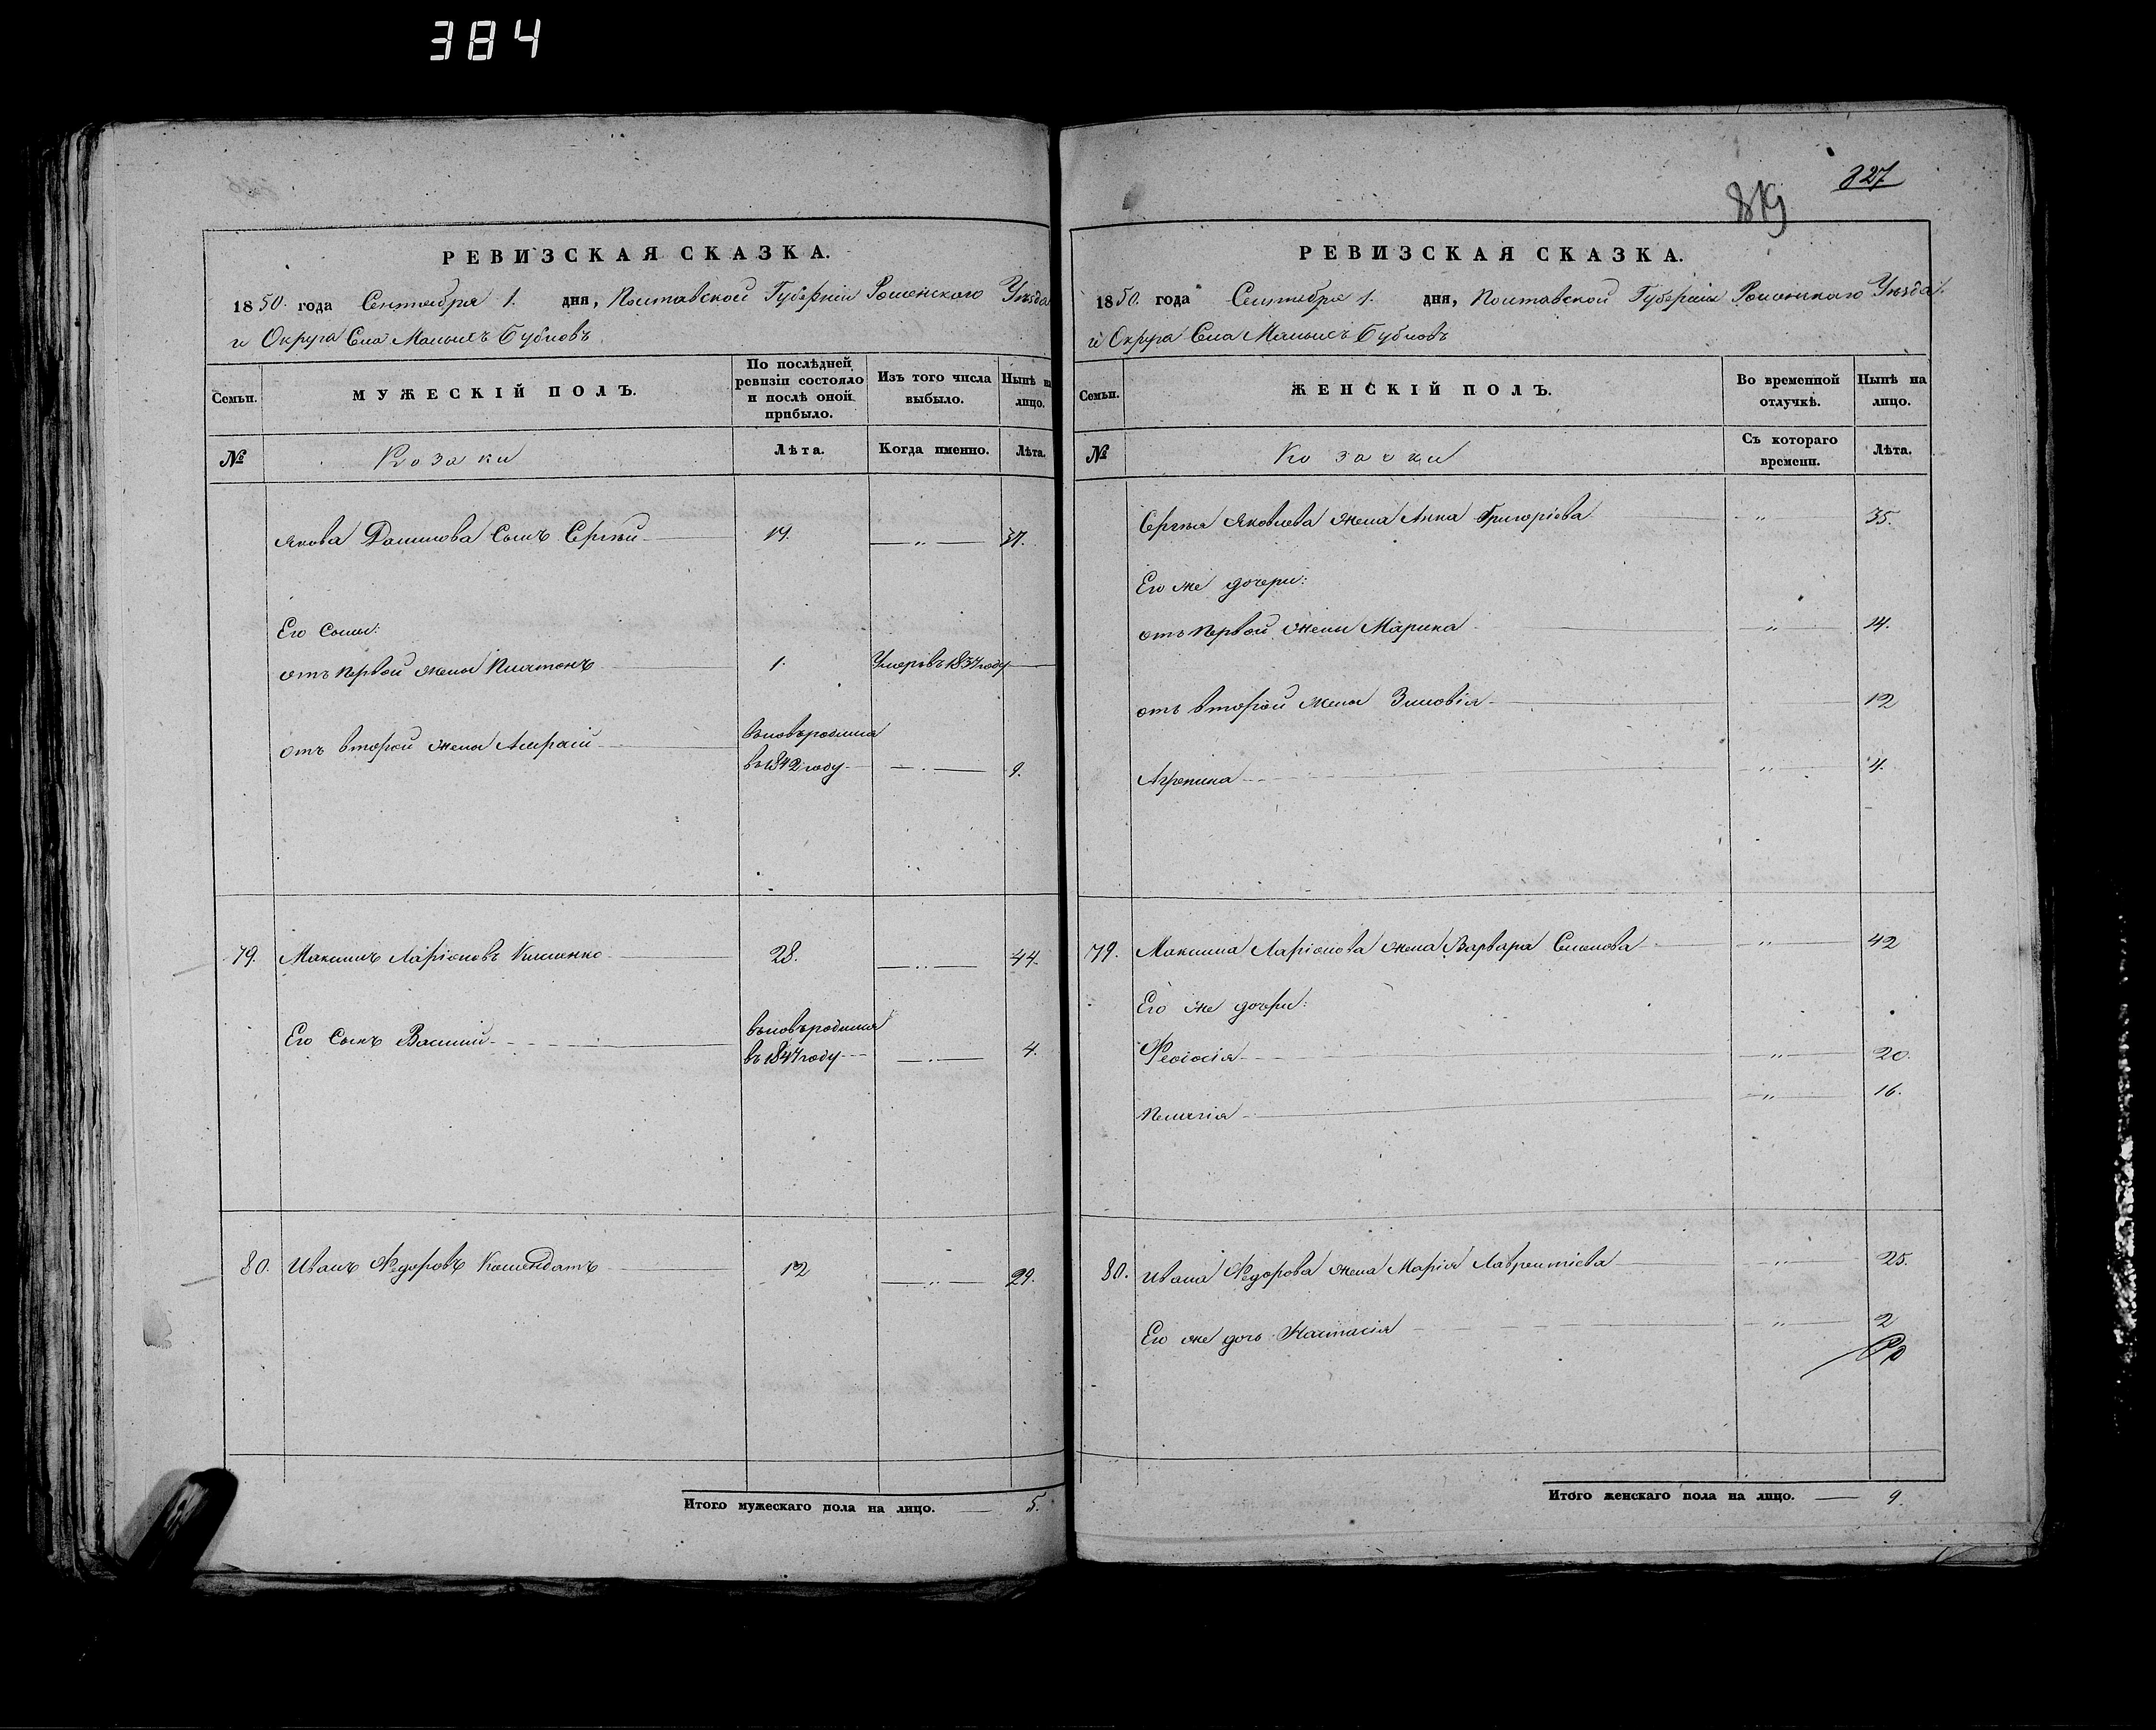 384
827
РЕВИЗСКАЯ СКАЗКА.
1850. года Сентября 1. дня, Полтавской Губерніи Роменского Уезда
и Округа Села Малыхъ Бубновъ.
Семьи.
МУЖЕСКІЙ ПОЛЪ.
По послѣдней ревизіи состояло и послѣ оной прибыло.
Изъ того числа выбыло.
Нынѣ на лицо.
№
Козаки
Лѣта.
Когда именно.
Лѣта.
Якова Данилова Сынъ Сергѣй 14. — „ —
Его Сыны:
отъ первой жены Платонъ 1. Умеръ въ 1837 году
отъ второй жены вновьродился
въ 1842 году — . — 9.
79. Максимъ Ларіоновъ 28. — „ — 44.
Его Сынъ Василий вновьродился
въ 1847 году — . — 4.
80. Иванъ Федоровъ Комендатъ 12 — „ — 29.
Итого мужескаго пола на лицо. — 5.
РЕВИЗСКАЯ СКАЗКА.
1850. года Сентября 1. дня, Полтавской Губерніи Роменского Уезда.
и Округа Села Малыхъ Бубновъ
Семьи.
ЖЕНСКІЙ ПОЛЪ.
Во временной отлучкѣ.
Нынѣ на лицо.
№
Козачки
Съ котораго времени.
Лѣта.
Сергѣя Яковлева жена Анна Григоріева „ 35.
Его же дочери:
отъ первой жены Марина „ 14.
отъ второй жены Зиновія 12
Агрепина „ 4.
79. Максима Ларіонова жена Варвара Семенова „ 42
Его же дочери:
Феодосія „ 20.
Пелагія „ 16.
80. Ивана Федорова жена Марія Лаврентіева „ 25.
Его же дочь Настасія „ 2
Итого женскаго пола на лицо. — 9.